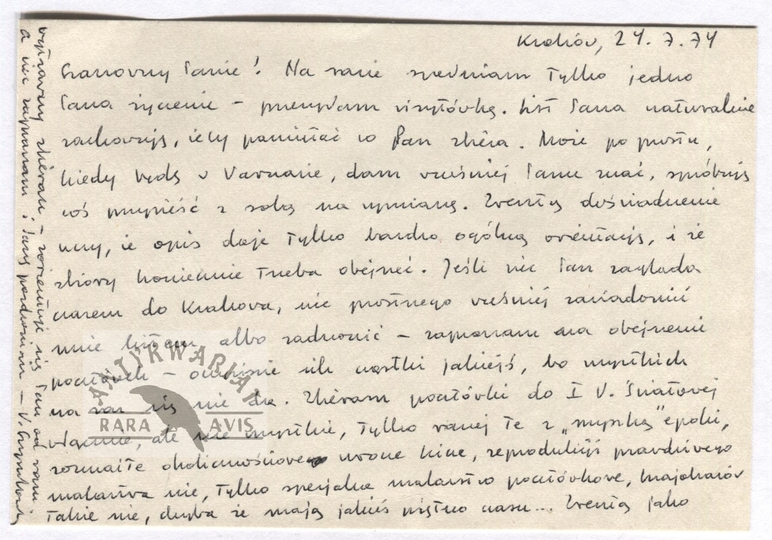 Kraków, 24. 7. 74
Szanowny Panie! Na razie spełniam tylko jedno
Pana życzenie – przesyłam wizytówkę. List Pana naturalnie
zachowuję, żeby pamiętać co Pan zbiera. Może po prostu,
kiedy będę w Warszawie, dam wcześniej Panu znać, spróbuję
coś przynieść z sobą na wymianę. Zresztą doświadczenie
uczy, że opis daje tylko bardzo ogólną orientację, i że
zbiory koniecznie trzeba obejrzeć. Jeśli więc Pan zagląda
czasem do Krakowa, nic prostszego wcześniej zawiadomić
mnie listem albo zadzwonić – zapraszam na obejrzenie
pocztówek – oczywiście ich cząstki jakiejś, bo wszystkich
na raz się nie da. Zbieram pocztówki do I W. Światowej
włącznie, ale nie wszystkie, tylko raczej te z „myszką" epoki,
rozmaite okolicznościowe urocze kicze, reprodukcji prawdziwego
malarstwa nie, tylko specjalne malarstwo pocztówkowe, krajobrazów
także nie, chyba że mają jakieś piętno czasu... Zresztą jako
wytrawny zbieracz – zorientuje się Pan od razu
a więc zapraszam i łączę pozdrowienia – W.
ANTYKWARIAT
RARA AVIS